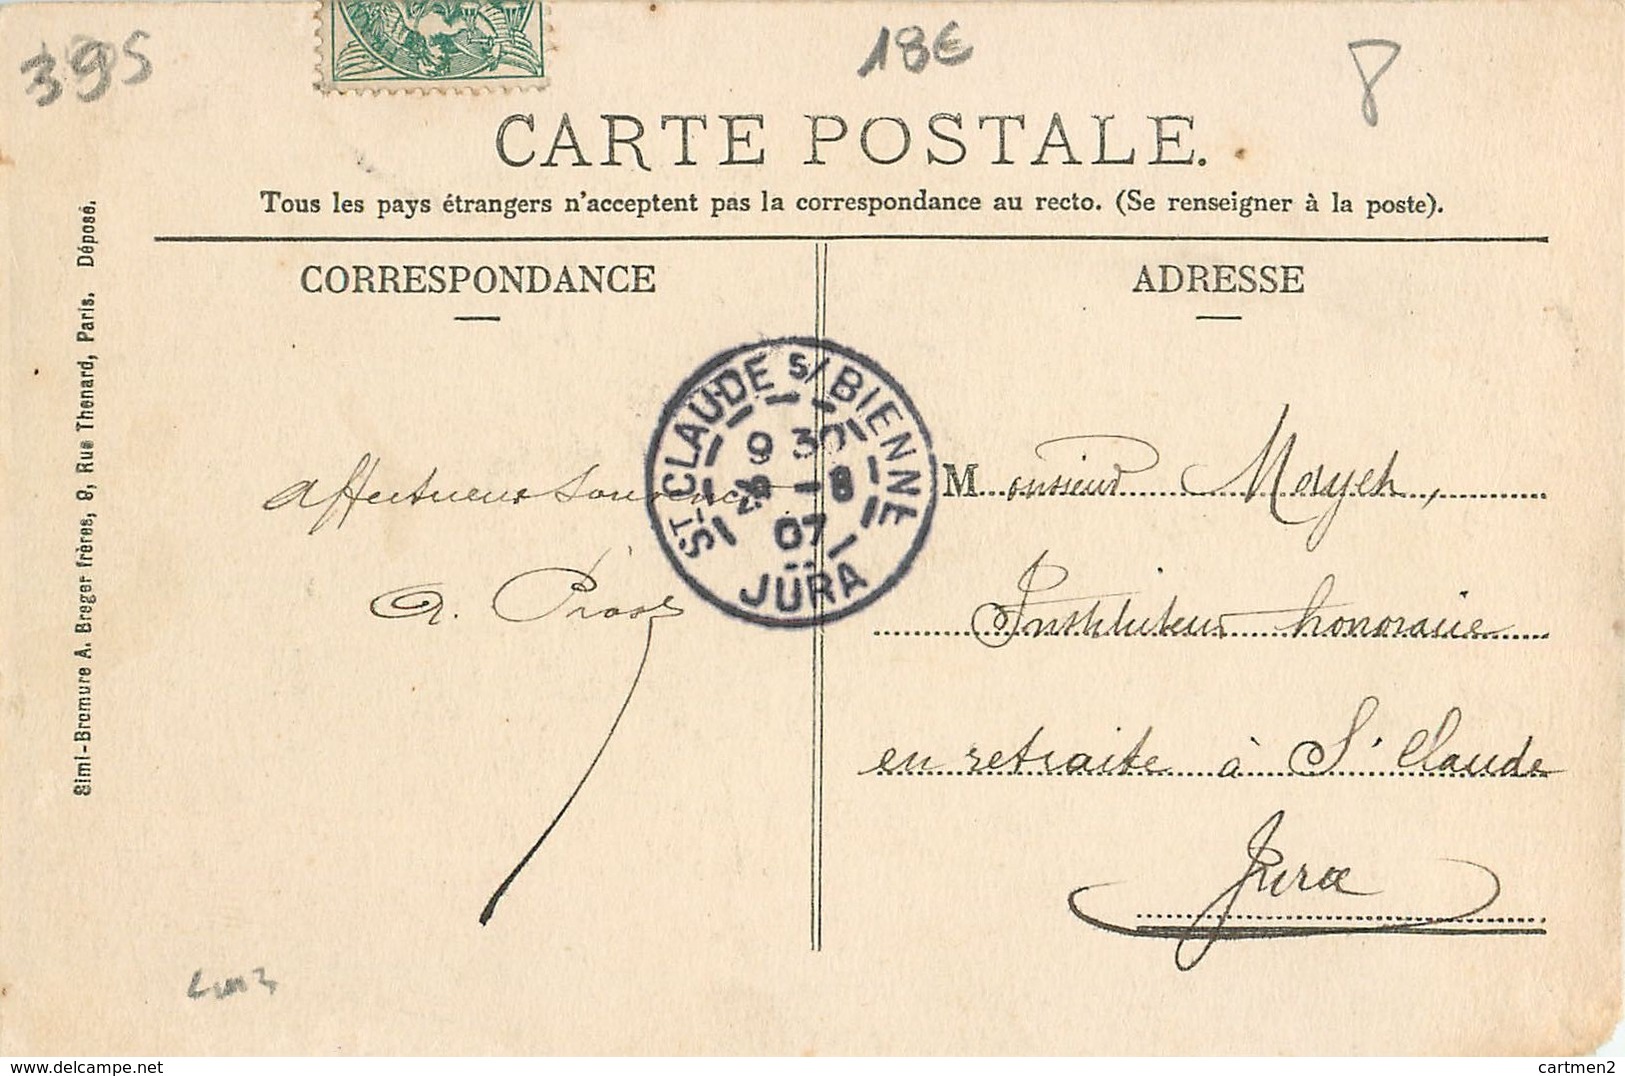 395
18€
8
CARTE POSTALE.
Tous les pays étrangers n'acceptent pas la correspondance au recto. (Se renseigner à la poste).
CORRESPONDANCE
ADRESSE
Simi-Bromure A. Breger frères, 9, Rue Thenard, Paris. Déposé.
ST-CLAUDE S/ BIENNE
9 30
-8
07
JURA
Affectueux Souvenir
A.
Monsieur Mayet,
Instituteur honoraire
en retraite à St Claude
Jura
cartmen2